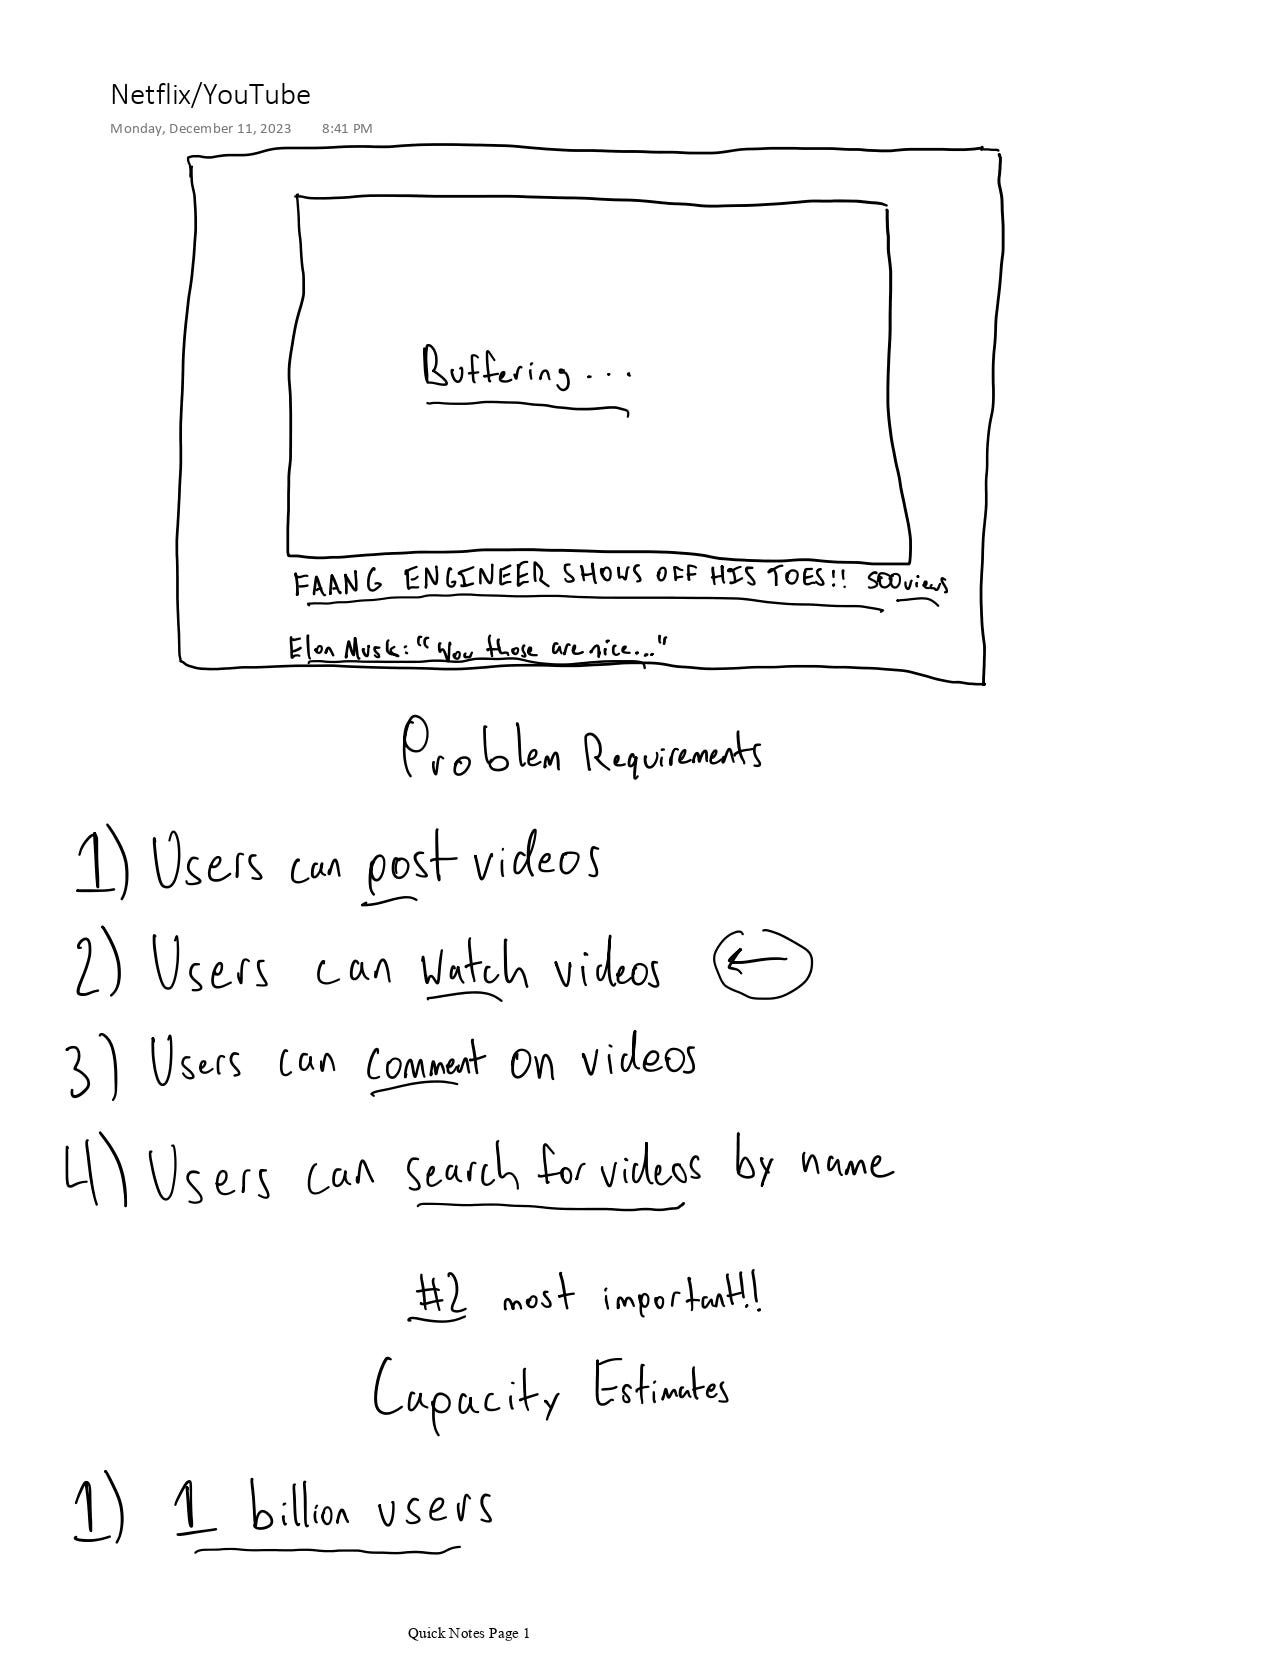 Netflix/YouTube
Monday, December 11, 2023 8:41 PM
Buffering...
FAANG ENGINEER SHOWS OFF HIS TOES!! 500 views
Elon Musk: "Wow those are nice..."
Problem Requirements
1) Users can post videos
2) Users can watch videos ←
3) Users can comment on videos
4) Users can search for videos by name
#2 most important!!
Capacity Estimates
1) 1 billion users
Quick Notes Page 1